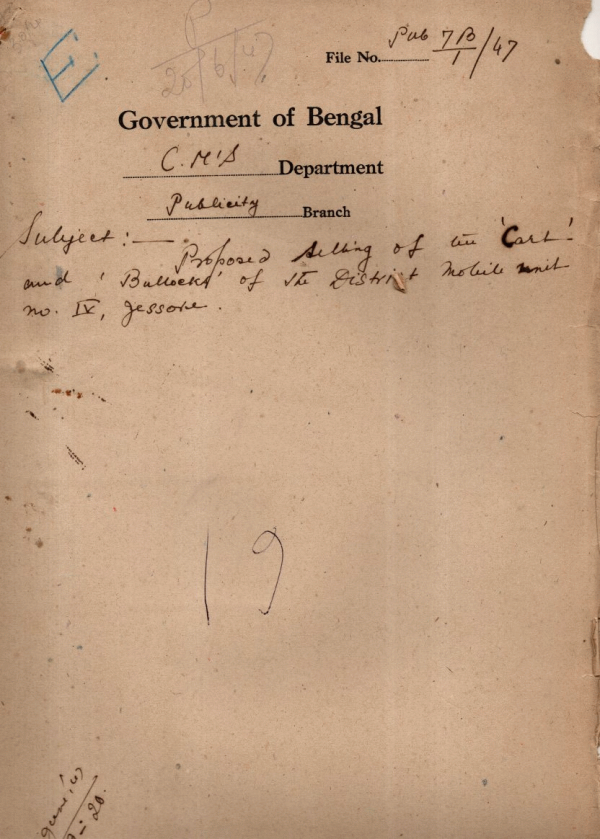 E
P
20/6/47
File No. Pub 7B/1/47
Government of Bengal
C.M'S Department
Publicity Branch
Subject: — Proposed selling of the 'Cart'
and 'Bullocks' of the District Mobile unit
no. IX, Jessore.
19
June '47
20.